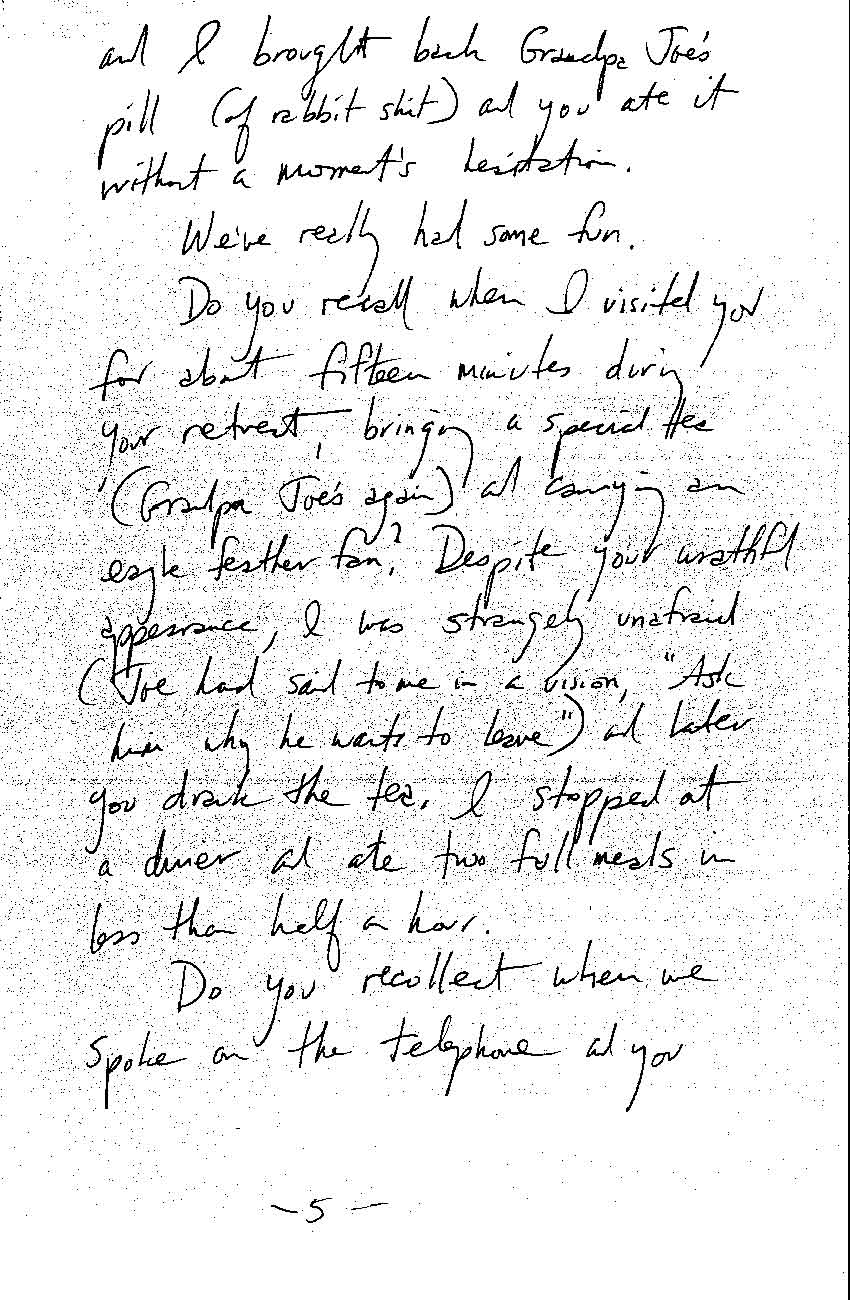 and I brought back Grandpa Joe's
pill (of rabbit shit) and you ate it
without a moment's hesitation.
We've really had some fun.
Do you recall when I visited you
for about fifteen minutes during
your retreat, bringing a special tea
(Grandpa Joe's again) and carrying an
eagle feather fan? Despite your wrathful
appearance, I was strangely unafraid
(Joe had said to me in a vision, "Ask
him why he wants to leave") and later
you drank the tea. I stopped at
a diner and ate two full meals in
less than half a hour.
Do you recollect when we
spoke on the telephone and you
-5-